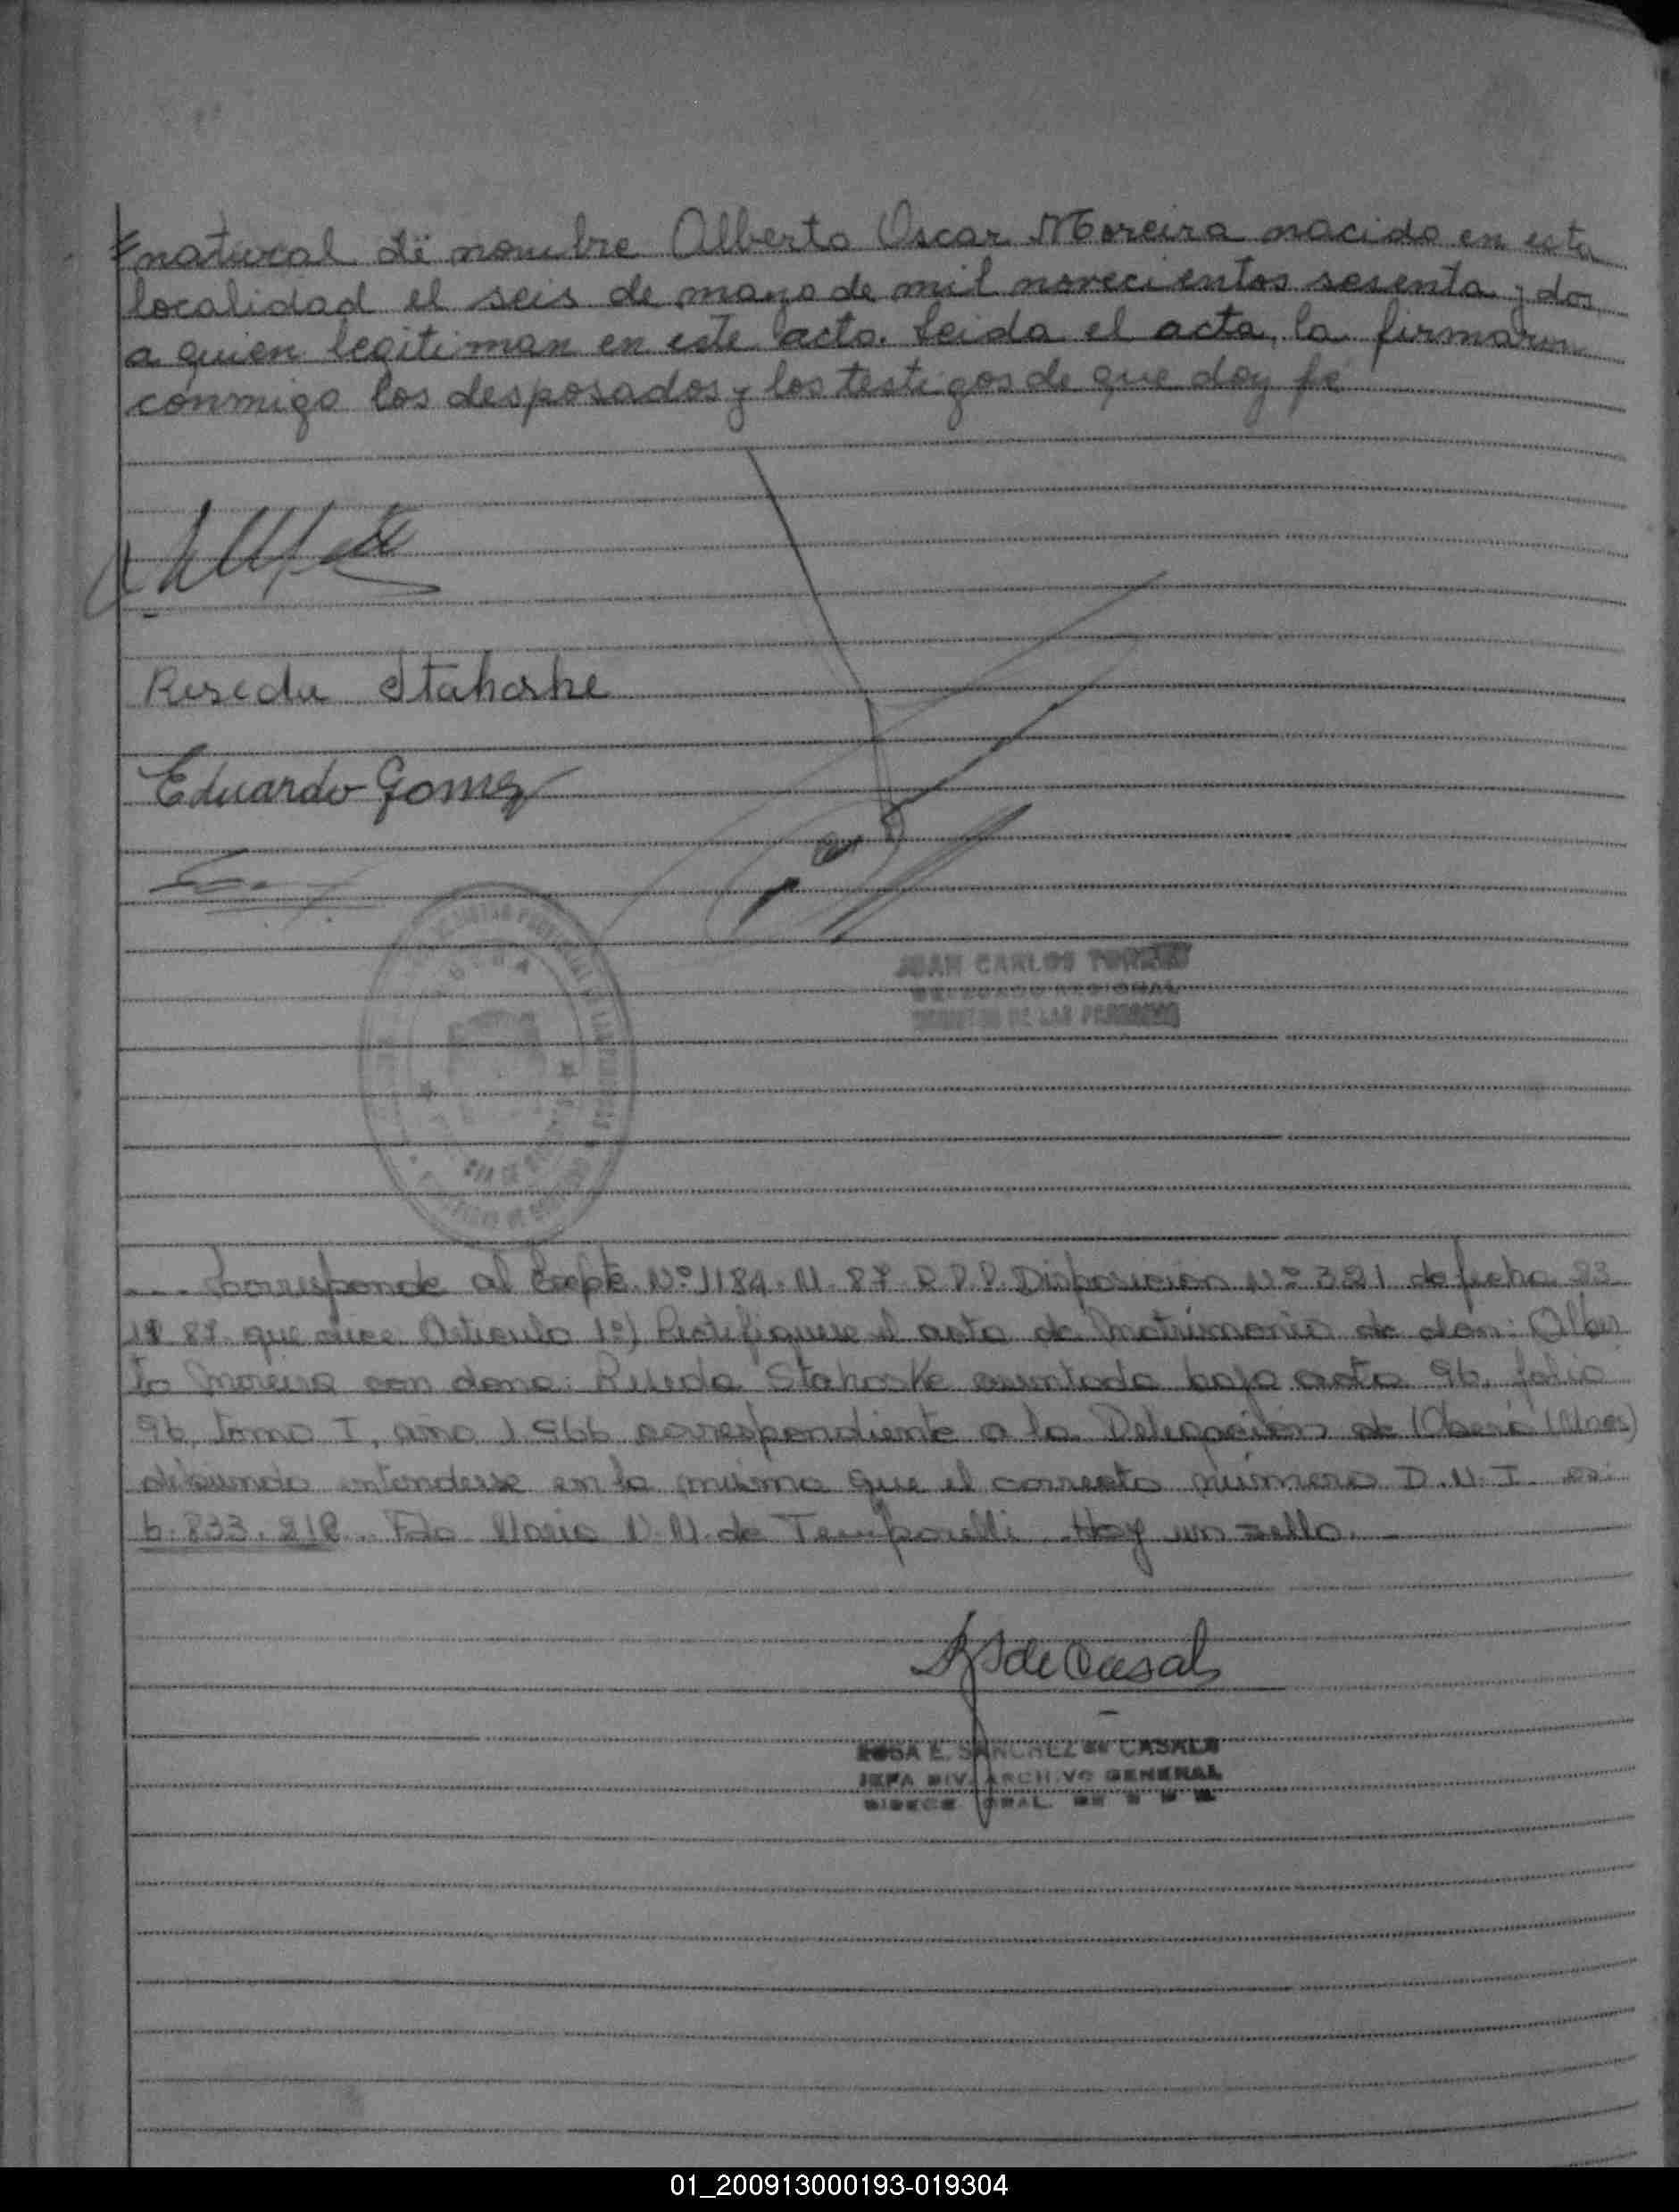 natural de nombre Alberto Oscar Moreira nacido en esta
localidad el seis de mayo de mil novecientos sesenta y dos
a quien legitiman en este acto. Leida el acta, la firmaron
conmigo los desposados y los testigos de que doy fé
Reseda Stahoske
Eduardo Gomez
JUAN CARLOS
DELEGADO REGIONAL
DE LAS PERSONAS
Corresponde al Expte. Nº 1184. M. 87 R.P.P. Disposicion Nº 321 de fecha 23
87 que dice Articulo 1º) Rectifiquese el acta de Matrimonio de don: Alber
to Moreira con doña: Reseda Stahoske asentada bajo acta 96, folio
96, tomo I, año 1966 correspondiente a la Delegación de Oberá (Mnes)
debiendo entenderse en la misma que el correcto número D.N.I. es:
Fdo Maria N. M. de Temporelli. Hay un sello.
de Casals
ROSA E. SANCHEZ de CASALS
JEFA DIV. ARCHIVO GENERAL
DIRECC GRAL. DE
01_200913000193-019304